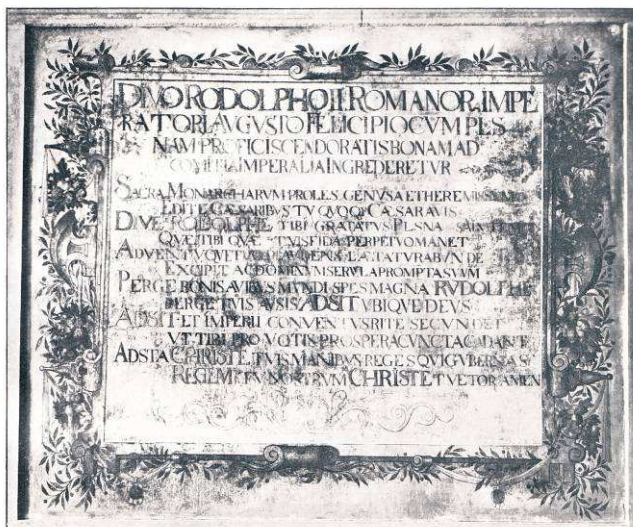 DIVO RODOLPHO II ROMANOR. IMPE
RATORI AVGVSTO FELICI PIO CVM PLS
NAM PROFICISCENDO RATISBONAM AD
COMITIA IMPERALIA INGREDERETVR
SACRA MONARCHARVM PROLES GENVS AETHERE
EDITE CÆSARIBVS TV QVOQ CÆSAR AVIS
DIVE RODOLPHE TIBI GRATATVR PLSNA
QVÆ TIBI QVÆ TVIS FIDA PERPETVO MANET
ADVENTVQVE TVO PLAVDENS LÆTATVR ABVNDE
EXCIPIT AC DOMINVM SERVLA PROMPTA SVVM
PERGE BONIS AVIBVS MVNDI SPES MAGNA RVDOLPHE
PERGE TVIS AVSIS ADSIT VBIQVE DEVS
ADSIT ET IMPERII CONVENTVS RITE SECVNDET
VT TIBI PRO VOTIS PROSPERA CVNCTA CADANT
ADSTA CHRISTE TVIS MANIBVS REGES QVI GVBERNAS
REGEM TV NOSTRVM CHRISTE TVETOR AMEN